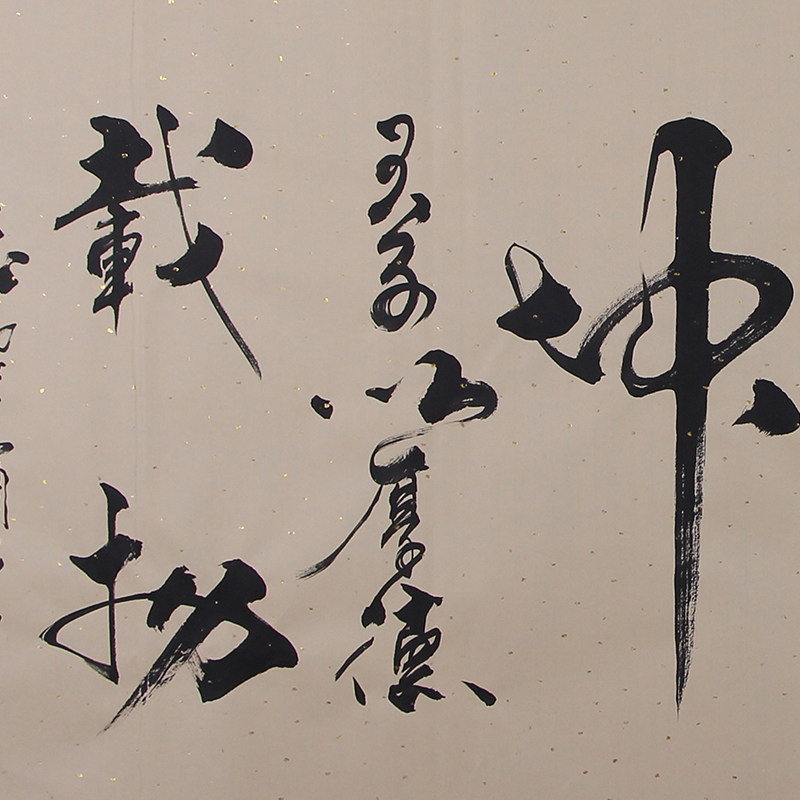 坤
君子以厚德
載物